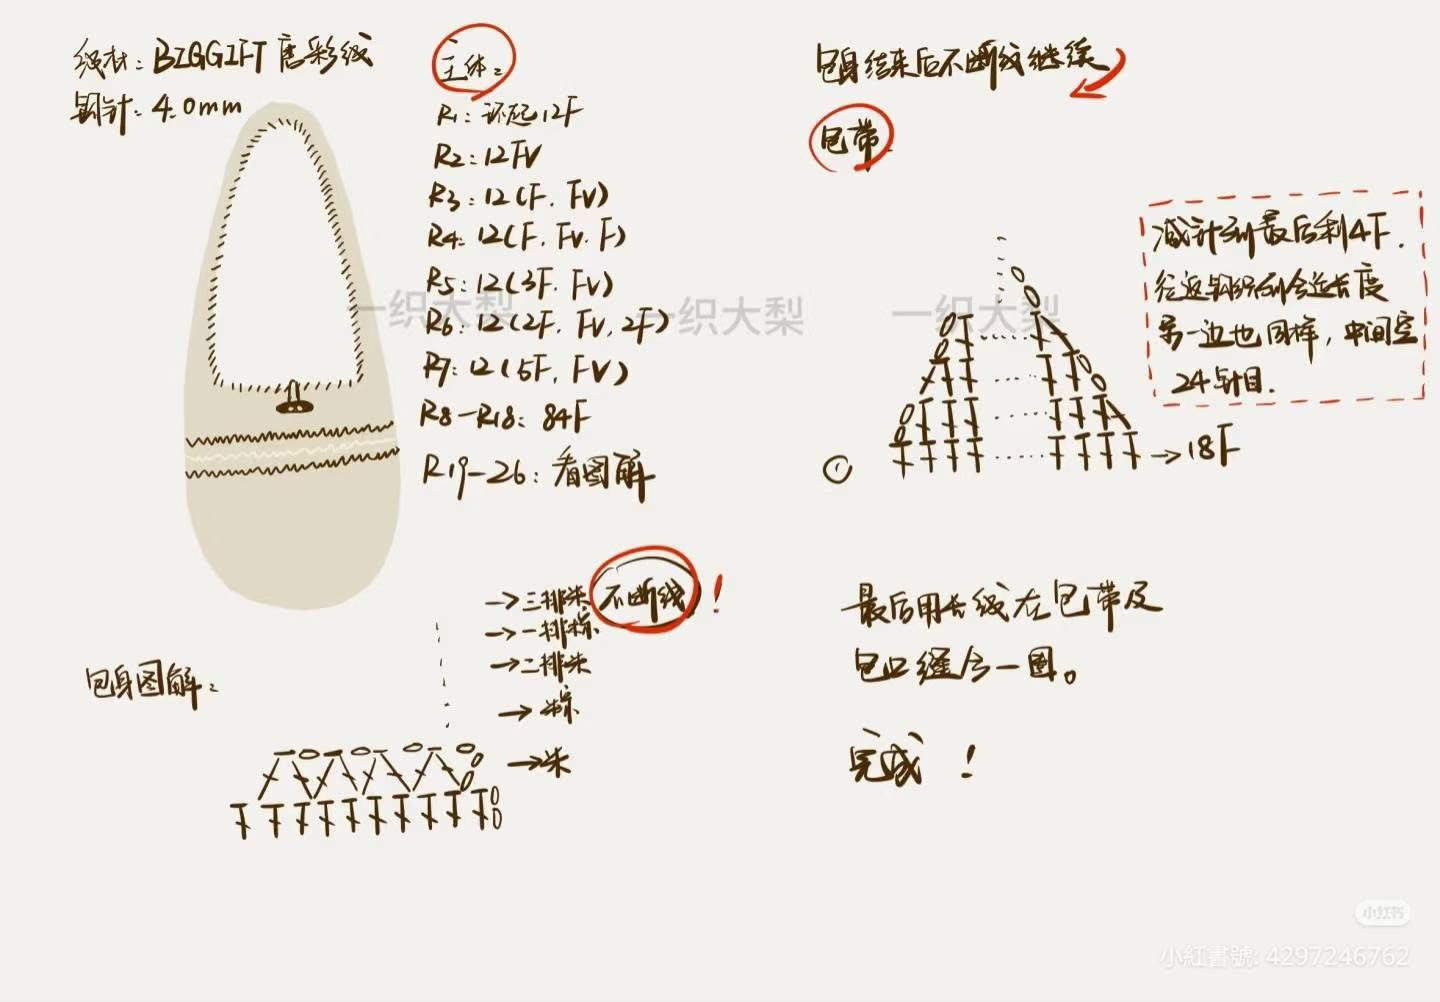 线材：BIGGIFT 唐彩线
钩针：4.0mm
主体：
R1：环起12F
R2：12FV
R3：12(F, FV)
R4：12(F, FV, F)
R5：12(3F, FV)
R6：12(2F, FV, 2F)
R7：12(5F, FV)
R8-R18：84F
R19-26：看图解
包身图解：
→三排米 不断线！
→一排棕
→二排米
→棕
→米
包身结束后不断线继续
包带：
减针到最后剩4F.
往返钩织到合适长度
另一边也同样，中间空
24针目.
① →18F
最后用长线在包带及
包口缝合一圈。
完成！
一织大梨
一织大梨
一织大梨
小红书
小紅書號: 4297246762